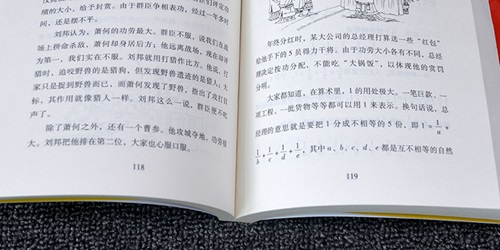 绩的大小,给予封赏。由于群臣争相表功,经过一年多时
间、还是摆不平。
刘邦认为,萧何的功劳最大。群臣不服,说我们在战
场上拼命杀敌,萧何却身居后方;他远离战场,现在却评
为第一,我们实在不服。刘邦就用打猎作比方。他说,打
猎时,追咬野兽的是猎狗,但发现野兽遗迹的是猎人;大
家只是捉到野兽而已,而萧何发现了野兽,指出了攻打目
标,其作用就像猎人一样。刘邦这么一说,群臣便不吭
声了。
除了萧何之外,还有一个曹参。他攻城夺地,功劳很
大。刘邦把他排在第二位,大家也心服口服。
118
年终分红时,某大公司的总经理打算送一些“红包”
给他手下的5员得力干将。由于功劳大小各有不同,总经
理决定按功分配,不能吃“大锅饭”,以体现他的赏罚
分明。
大家都知道,在算术里,1的用处极大。一笔巨款、一
项工程、一批货物等等都可以用1来表示。换句话说,总
经理的意思就是要把1分成不相等的5份,即1=1/a+
1/b+1/c+1/d+1/e,其中a、b、c、d、e都是互不相等的自然
119